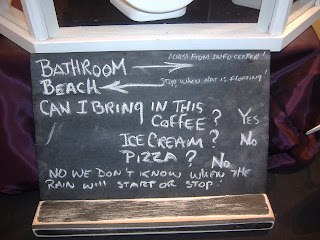 ACROSS FROM INFO CENTER!
BATHROOM →
BEACH ← STOP WHEN HAT IS FLOATING
CAN I BRING IN THIS
COFFEE? YES
ICE CREAM? NO
PIZZA? NO
NO WE DON'T KNOW WHEN THE
RAIN WILL START OR STOP!